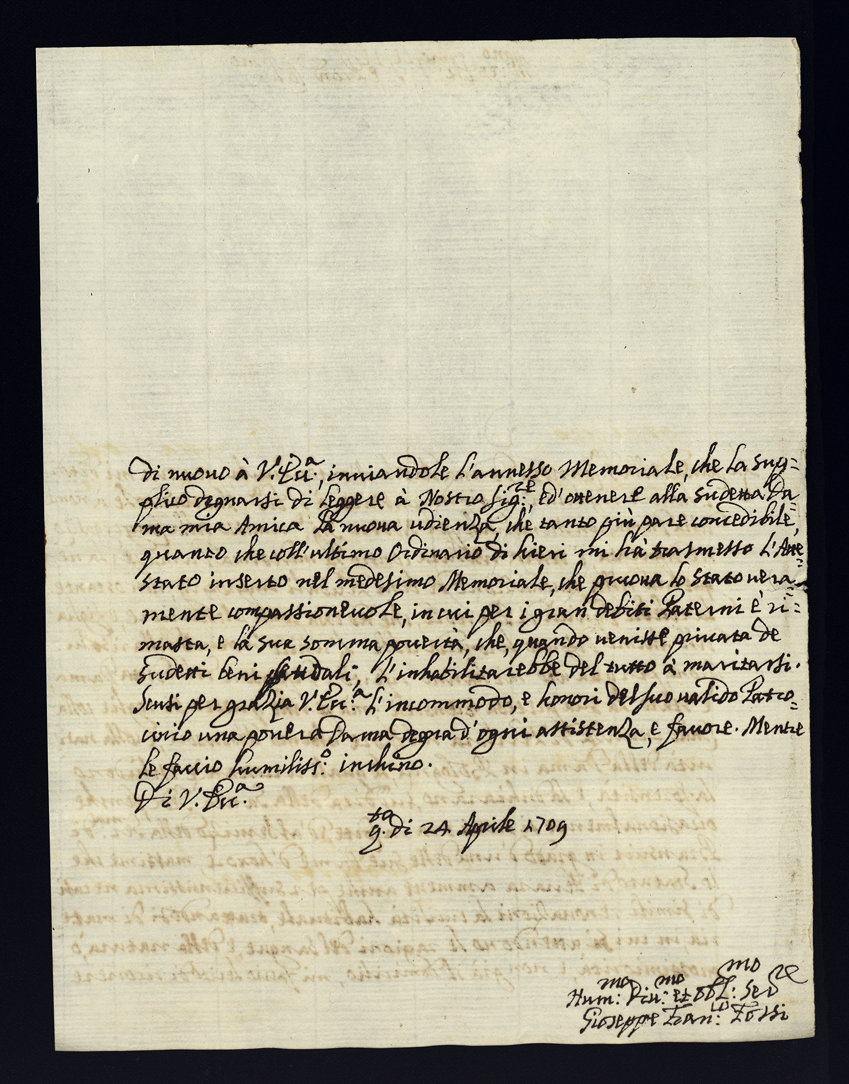 di nuouo à V.ra Ecc.a, inuiandole l'annesso Memoriale, che la sup=
plico degnarsi di leggere à Nostro Sig.re, ed'ottenere alla sudetta Da=
ma mia Amica la nuoua udienza, che tanto più pare concedibile,
quanto che coll'ultimo Ordinario di hieri mi hà trasmesso l'Atte=
stato inserto nel medesimo Memoriale, che pruoua lo stato uera=
mente compassioneuole, in cui per i gran debiti Paterni è ri=
masta, e la sua somma pouertà, che, quando uenisse priuata de
sudetti beni feudali, l'inhabilitarebbe del tutto à maritarsi.
Senti per grazia V. Ecc.a l'incommodo, e honori del suo ualido Patro=
cinio una pouera Dama degna d'ogni assistenza, e fauore. Mentre
le faccio humiliss.o inchino.
Di V. Ecc.a
di 24 Aprile 1709
Hum:mo Diu:mo et obl:mo Se.re
Gioseppe Fran:co Fossi